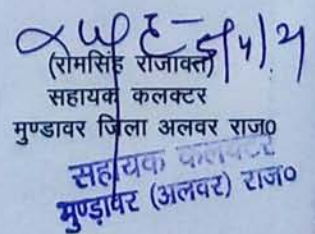 (रामसिंह राजावत)
सहायक कलक्टर
मुण्डावर जिला अलवर राज०
सहायक कलक्टर
मुण्डावर (अलवर) राज०